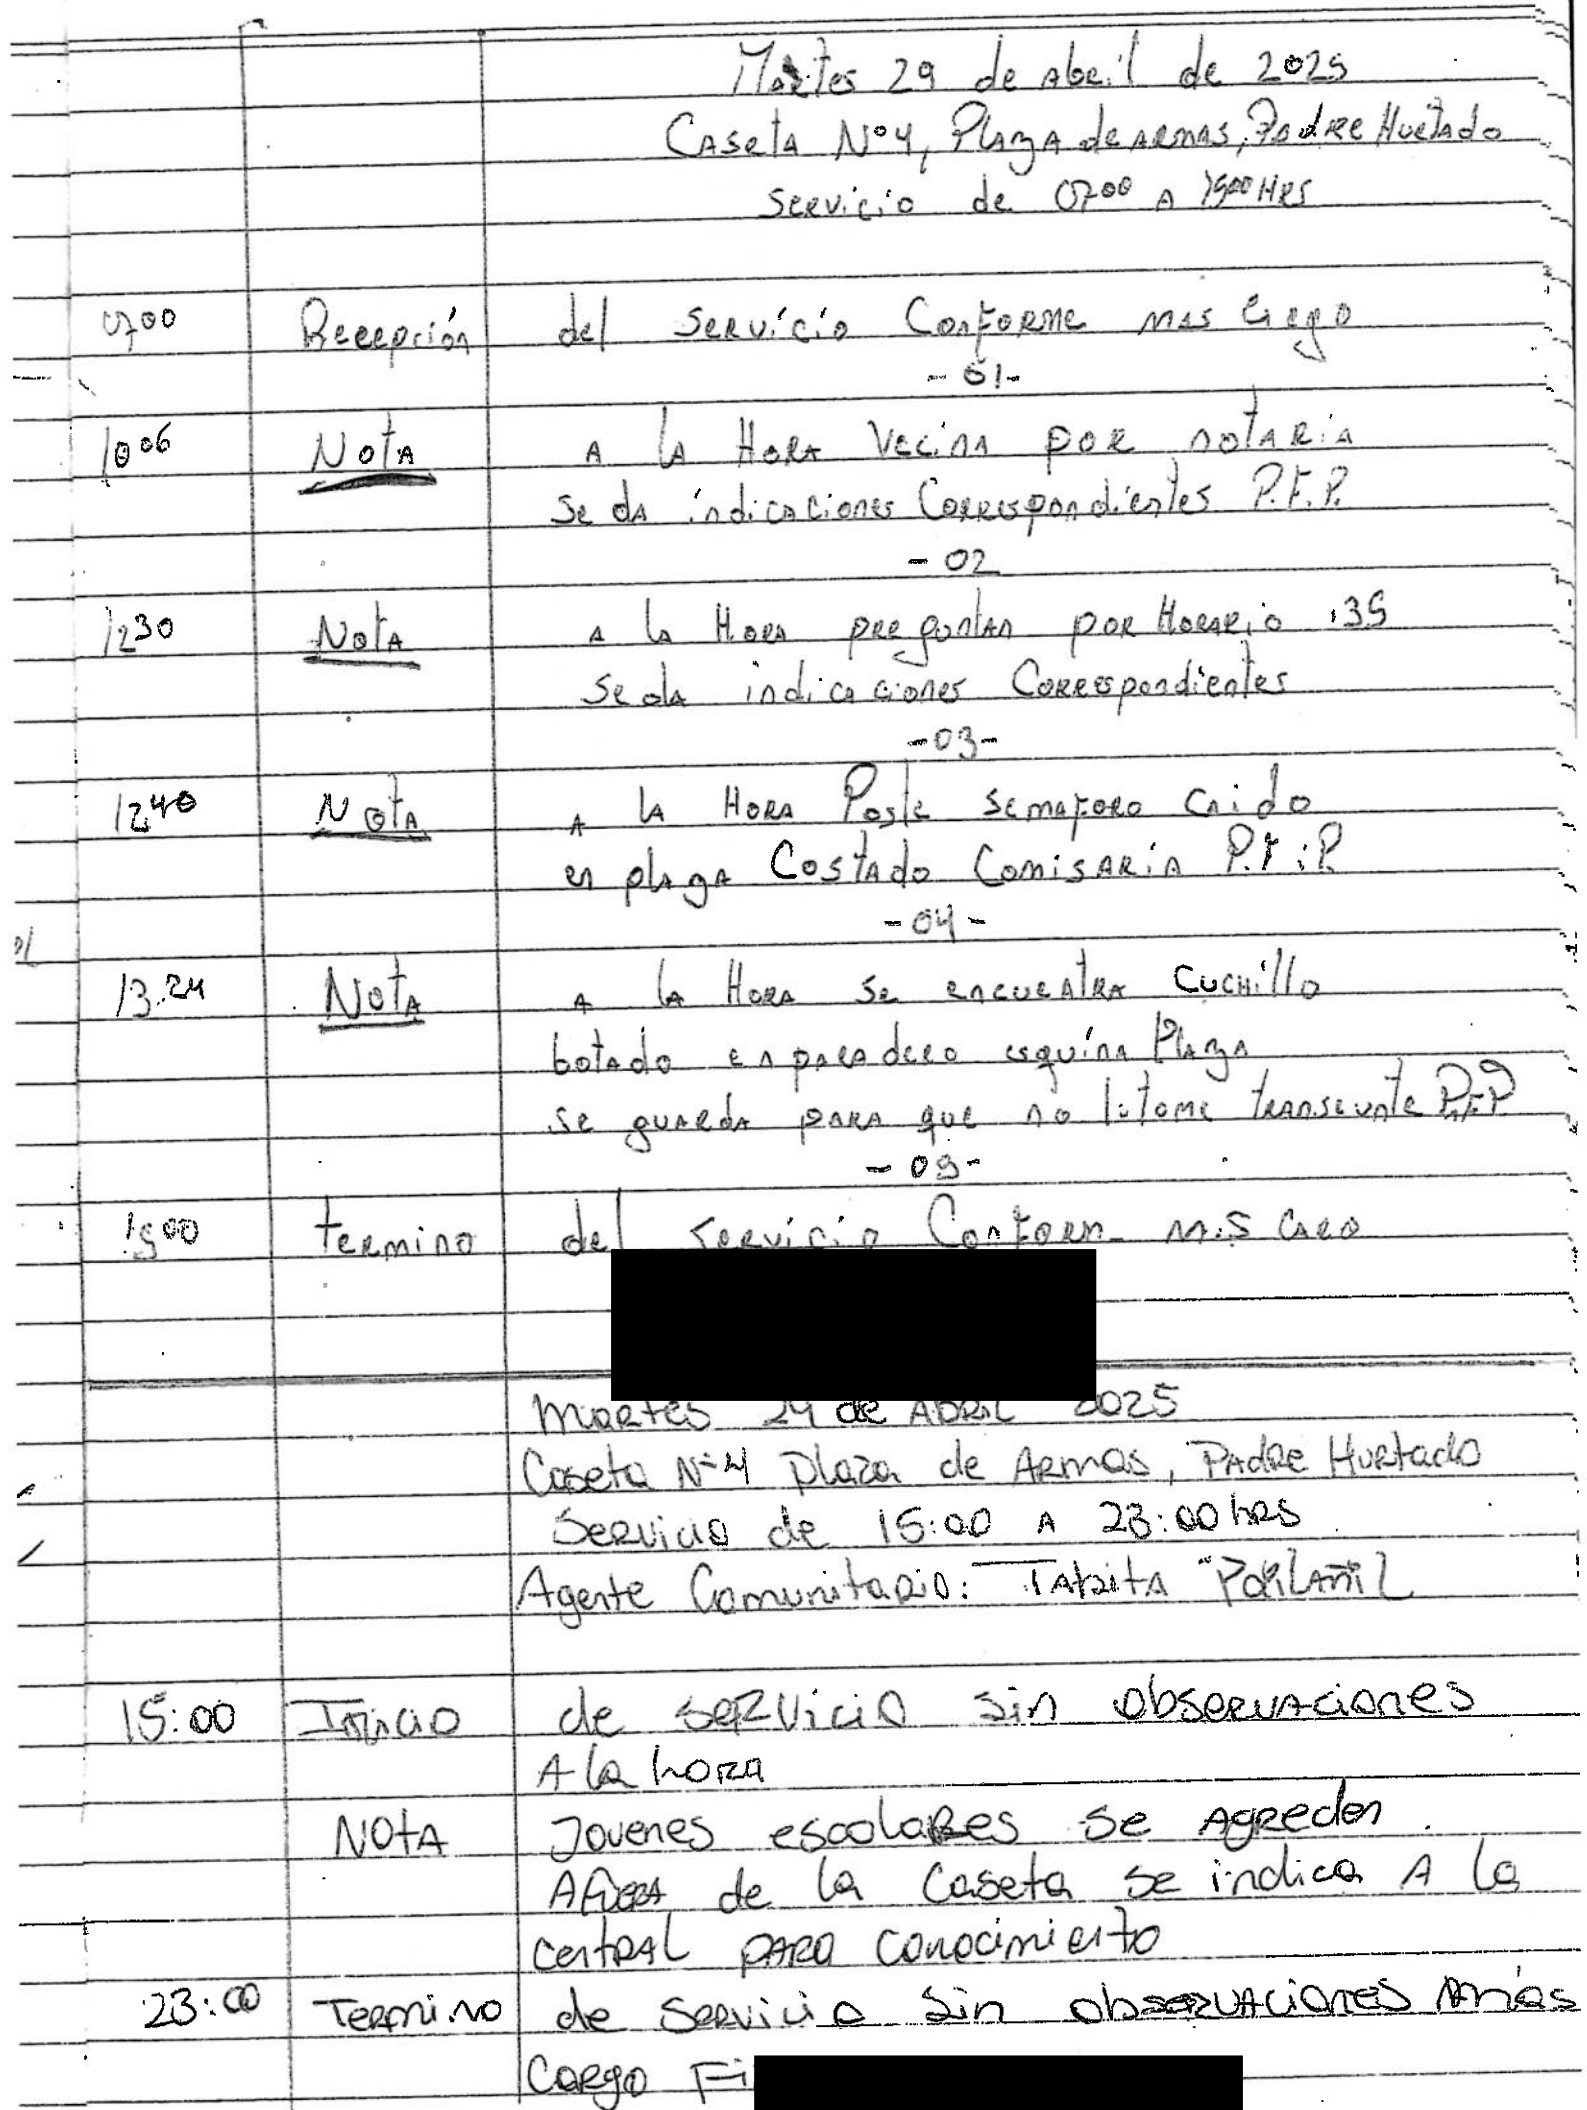 Martes 29 de Abril de 2025
Caseta N°4, Plaza de Armas, Padre Hurtado
Servicio de 0700 A 1500 HRS
0700 Recepción del Servicio Conforme mas
-01-
1006 Nota A la Hora Vecina por notaria
se da indicaciones Correspondientes P.F.P.
-02
1230 Nota A la Hora preguntan por Horario 135
se da indicaciones Correspondientes
-03-
1240 Nota A la Hora Poste semaforo Caido
en plaza Costado Comisaria P.F.P.
-04-
13.24 Nota A la Hora se encuentra Cuchillo
botado en paradero esquina Plaza
se guarda para que no lo tome transeunte P.F.P
-05-
1500 termino del servicio Conform mas
Martes 29 de ABRIL 2025
Caseta N°4 Plaza de Armas, Padre Hurtado
Servicio de 15:00 A 23:00 hrs
Agente Comunitario: Tabita
15:00 Inicio de servicio sin observaciones
A la hora
Nota Jovenes escolares se agreden
Afuera de la Caseta se indica A la
Central para Conocimiento
23:00 Termino de Servicio sin observaciones más
Cargo Fi